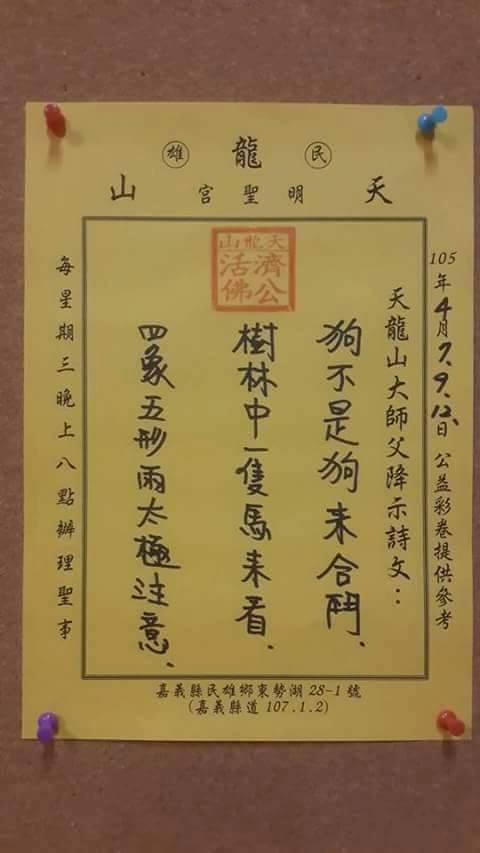 民 龍 雄
天 明聖宮 山
105年4月7.9.12.日 公益彩卷提供參考
天龍山大師父降示詩文：
天龍山
濟公
活佛
狗不是狗来合鬥、
樹林中一隻馬来看、
四象五形雨太極注意、
每星期三晚上八點辦理聖事
嘉義縣民雄鄉東勢湖28-1號
(嘉義縣道107.1.2)